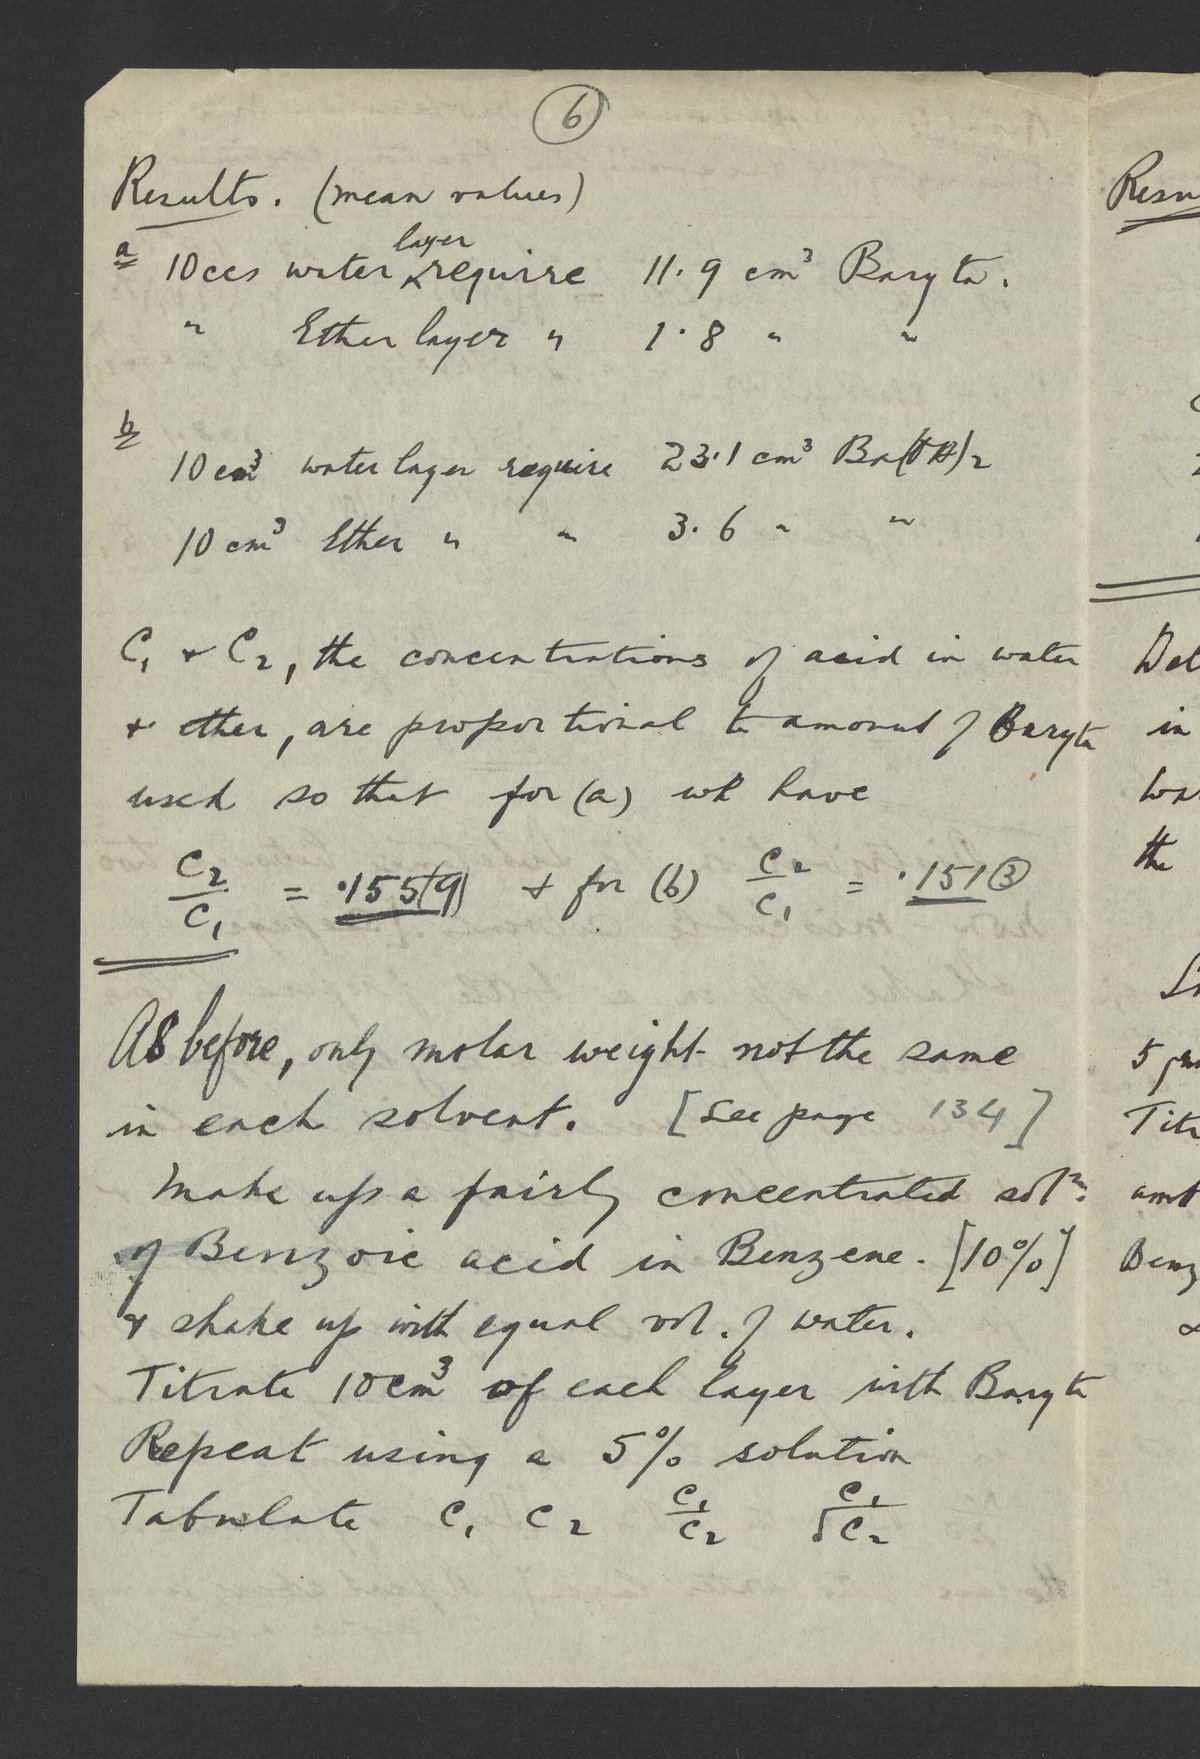 6
Results. (mean values)
a 10ccs water layer require 11.9 cm³ Baryta.
" Ether layer " 1.8 " "
b
10 cm³ water layer require 23.1 cm³ Ba(OH)₂
10 cm³ Ether " " 3.6 " "
C₁ & C₂, the concentrations of acid in water
& ether, are proportional to amount of Baryta
used so that for (a) we have
C₂/C₁ = .155(9) & for (b) C₂/C₁ = .151③
As before, only molar weight not the same
in each solvent. [See page 134]
Make up a fairly concentrated solⁿ.
of Benzoic acid in Benzene. [10%]
& shake up with equal vol. of water.
Titrate 10cm³ of each layer with Baryta
Repeat using a 5% solution
Tabulate C₁ C₂ C₁/C₂ C₁/√C₂
Resu
Det
in
wa
the
5 gm
Titr
amt
Benz